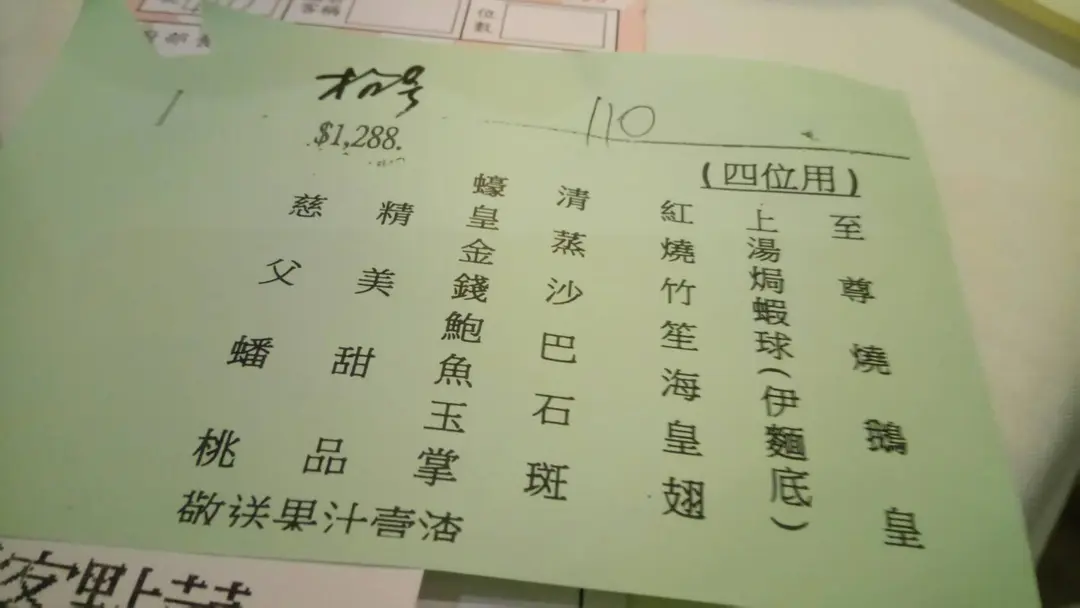 位數
110
$1,288.
(四位用)
至尊燒鵝皇
上湯焗蝦球(伊麵底)
紅燒竹笙海皇翅
清蒸沙巴石斑
蠔皇金錢鮑魚玉掌
精美甜品
慈父蟠桃
敬送果汁壹渣
客點菜